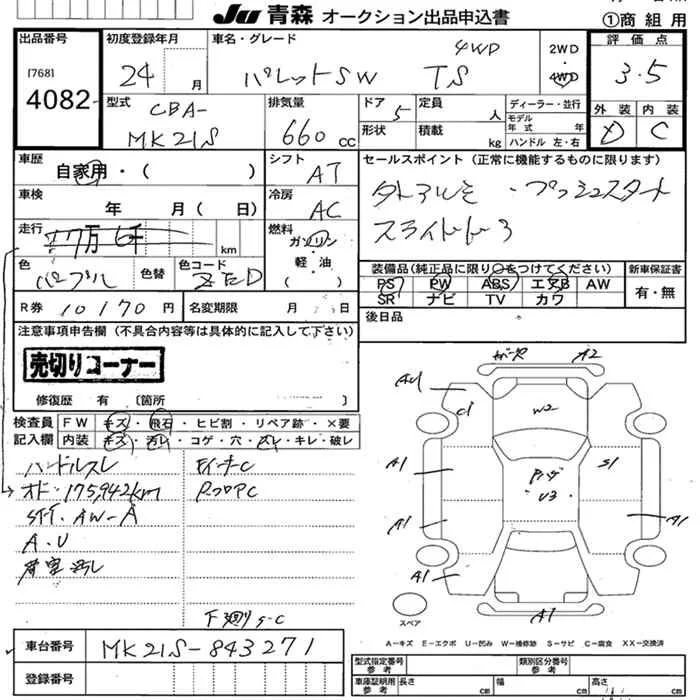 JU 青森 オークション出品申込書
①商 組 用
出品番号
[768]
4082
初度登録年月
24 月
車名・グレード
パレットSW TS
4WD
2WD
・
4WD
評 価 点
3.5
外 装
内 装
D
C
型式
CBA-
MK21S
排気量
660 cc
ドア
5
形状
定員
人
積載
kg
ディーラー・並行
モデル
年 式
年
ハンドル 左・右
車歴
自家用・( )
シフト
AT
セールスポイント (正常に機能するものに限ります)
プッシュスタート
スライドドア
車検
年 月( 日)
冷房
AC
走行
km
燃料
ガソリン
軽・油
( )
色
パープル
色替
色コード
装備品(純正品に限り○をつけてください)
新車保証書
PS
PW
ABS
エアB
AW
SR
ナビ
TV
カワ
有・無
R券
10170 円
名変期限
月
日
後日品
注意事項申告欄 (不具合内容等は具体的に記入して下さい)
売切りコーナー
修復歴 有 〔箇所
検査員
記入欄
FW
キズ・飛石・ヒビ割・リペア跡・×要
内装
キズ・汚レ・コゲ・穴・スレ・キレ・破レ
ハンドルスレ
オド・175,942km
AW-A
A.U
F3廻りS-C
A2
C1
W2
A1
S1
U3
A1
A1
A1
A1
スペア
A-キズ E-エクボ U-凹み W-補修跡 S-サビ C-腐食 XX-交換済
車台番号
MK21S-843271
登録番号
型式指定番号
参 考
類別区分番号
参 考
車庫証明用
参 考
長さ
cm
幅
cm
高さ
cm